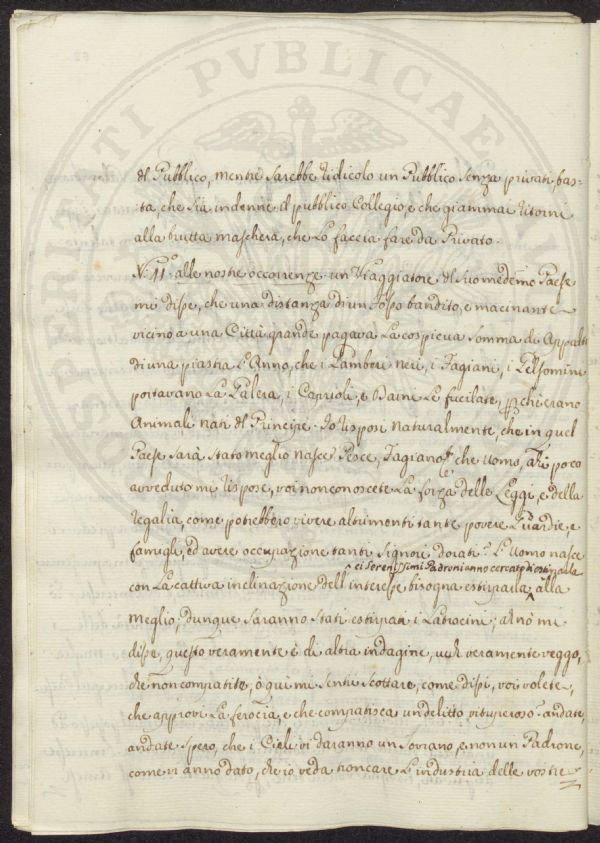 del Pubblico, mentre sarebbe ridicolo un Pubblico senza privati bas-
ta, che sia indenne il pubblico Collegio, e che giammai ritorni
alla brutta maschera, che Lo faccia fare da Privato.
N.º 11.º alle nostre occorrenze un Viaggiatore del suo medemo Paese
mi disse, che una distanza di un bandito, e macinante
vicino a una Città grande pagava La cospicua somma di Appalti
di una piastra L'Anno, che i neri, i Fagiani, i
portavano La Galera, i Caprioli, e Daini Le fucilate, perché erano
Animali nati del Principe. Io risposi naturalmente, che in quel
Paese sarà stato meglio nascer Pesce, Fagiano, che Uomo, poco
avveduto mi rispose, voi non conoscete La forza delle Leggi, e della
regalia, come potrebbero vivere altrimenti tante povere Guardie, e
famigli, ed avere occupazione tanti Signori dorati? L'Uomo nasce
ei Serenissimi Padroni anno cercato di estirparla
con La cattiva inclinazione dell'interesse bisogna estirparla alla
meglio; dunque saranno stati estirpati i Latrocini; ah nò mi
disse, questo veramente è di altra indagine, veramente veggo,
che non compatite, ò qui mi sentii scottare, come dissi, voi volete,
che approvi La ferocia, e che compatisca un delitto vituperoso? andate,
andate spero, che i Cieli vi daranno un Sovrano, e non un Padrone,
come vi anno dato, che io veda troncare L'industria delle vostre